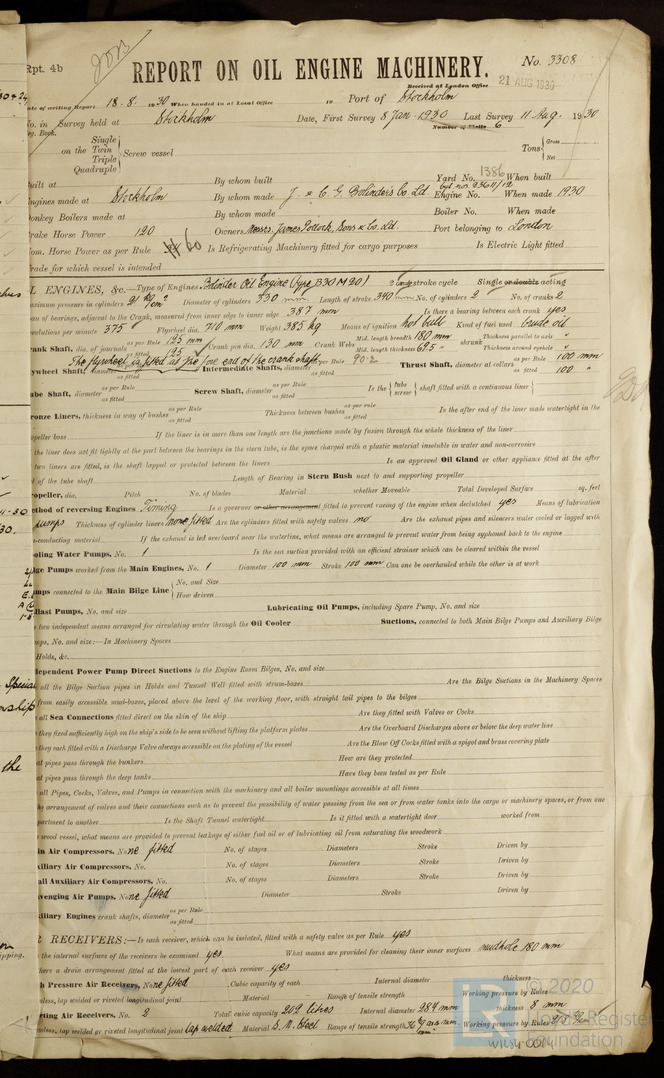 Rpt. 4b
REPORT ON OIL ENGINE MACHINERY.
No. 3308
Received at London Office
21 AUG 1930
ate of writing Report 18.8.1930 When handed in at Local Office 19 Port of Stockholm
No. in Survey held at Stockholm Date, First Survey 8 Jan. 1930 Last Survey 11 Aug. 1930
eg. Book. Number of Visits 6
on the Single Twin Triple Quadruple Screw vessel Tons Gross Net
uilt at By whom built Yard No. 1386 When built
ngines made at Stockholm By whom made J. & C. G. Bolinders Co. Ld. Engine No. When made 1930
onkey Boilers made at By whom made Boiler No. When made
rake Horse Power 120 Owners Messrs. James Pollock, Sons & Co. Ld. Port belonging to London
om. Horse Power as per Rule Is Refrigerating Machinery fitted for cargo purposes Is Electric Light fitted
rade for which vessel is intended
L ENGINES, &c.—Type of Engines Bolinder Oil Engine (type B30M20) 2 stroke cycle Single or double acting
aximum pressure in cylinders Diameter of cylinders 330 mm Length of stroke 340 mm No. of cylinders 2 No. of cranks 2
an of bearings, adjacent to the Crank, measured from inner edge to inner edge 387 mm Is there a bearing between each crank yes
evolutions per minute 375 Flywheel dia. 710 mm Weight 385 kg Means of ignition hot bulb Kind of fuel used Crude oil
rank Shaft, dia. of journals as per Rule 125 mm as fitted 125 Crank pin dia. 130 mm Crank Webs Mid. length breadth 180 mm Mid. length thickness 69.5 shrunk Thickness parallel to axis Thickness around eyehole
The flywheel is fitted at the fore end of the crank shaft
ywheel Shaft, Intermediate Shafts, diameter as per Rule 90.2 as fitted Thrust Shaft, diameter at collars as per Rule 100 mm as fitted 100
ube Shaft, diameter as per Rule as fitted Screw Shaft, diameter as per Rule as fitted Is the tube screw shaft fitted with a continuous liner
ronze Liners, thickness in way of bushes as per Rule as fitted Thickness between bushes as per rule as fitted Is the after end of the liner made watertight in the
opeller boss If the liner is in more than one length are the junctions made by fusion through the whole thickness of the liner
the liner does not fit tightly at the part between the bearings in the stern tube, is the space charged with a plastic material insoluble in water and non-corrosive
two liners are fitted, is the shaft lapped or protected between the liners Is an approved Oil Gland or other appliance fitted at the after
d of the tube shaft Length of Bearing in Stern Bush next to and supporting propeller
ropeller, dia. Pitch No. of blades Material whether Moveable Total Developed Surface sq. feet
ethod of reversing Engines Timing Is a governor or other arrangement fitted to prevent racing of the engine when declutched yes Means of lubrication
pumps Thickness of cylinder liners none fitted Are the cylinders fitted with safety valves no Are the exhaust pipes and silencers water cooled or lagged with
n-conducting material If the exhaust is led overboard near the waterline, what means are arranged to prevent water from being syphoned back to the engine
ooling Water Pumps, No. 1 Is the sea suction provided with an efficient strainer which can be cleared within the vessel
lge Pumps worked from the Main Engines, No. 1 Diameter 100 mm Stroke 100 mm Can one be overhauled while the other is at work
umps connected to the Main Bilge Line No. and Size How driven
allast Pumps, No. and size Lubricating Oil Pumps, including Spare Pump, No. and size
e two independent means arranged for circulating water through the Oil Cooler Suctions, connected to both Main Bilge Pumps and Auxiliary Bilge
mps, No. and size:—In Machinery Spaces
Holds, &c.
dependent Power Pump Direct Suctions to the Engine Room Bilges, No. and size
all the Bilge Suction pipes in Holds and Tunnel Well fitted with strum-boxes Are the Bilge Suctions in the Machinery Spaces
from easily accessible mud-boxes, placed above the level of the working floor, with straight tail pipes to the bilges
all Sea Connections fitted direct on the skin of the ship Are they fitted with Valves or Cocks
they fixed sufficiently high on the ship's side to be seen without lifting the platform plates Are the Overboard Discharges above or below the deep water line
they each fitted with a Discharge Valve always accessible on the plating of the vessel Are the Blow Off Cocks fitted with a spigot and brass covering plate
at pipes pass through the bunkers How are they protected
at pipes pass through the deep tanks Have they been tested as per Rule
all Pipes, Cocks, Valves, and Pumps in connection with the machinery and all boiler mountings accessible at all times
he arrangement of valves and their connections such as to prevent the possibility of water passing from the sea or from water tanks into the cargo or machinery spaces, or from one
partment to another Is the Shaft Tunnel watertight Is it fitted with a watertight door worked from
wood vessel, what means are provided to prevent leakage of either fuel oil or of lubricating oil from saturating the woodwork
in Air Compressors, None fitted No. of stages Diameters Stroke Driven by
xiliary Air Compressors, No. No. of stages Diameters Stroke Driven by
all Auxiliary Air Compressors, No. No. of stages Diameters Stroke Driven by
venging Air Pumps, None fitted Diameter Stroke Driven by
xiliary Engines crank shafts, diameter as per Rule as fitted
R RECEIVERS:—Is each receiver, which can be isolated, fitted with a safety valve as per Rule yes
the internal surfaces of the receivers be examined yes What means are provided for cleaning their inner surfaces mudhole 180 mm
here a drain arrangement fitted at the lowest part of each receiver yes
h Pressure Air Receivers, None fitted Cubic capacity of each Internal diameter thickness
mless, lap welded or riveted longitudinal joint Material Range of tensile strength Working pressure by Rules
rting Air Receivers, No. 2 Total cubic capacity 202 litres Internal diameter 284 mm thickness 8 mm
mless, lap welded or riveted longitudinal joint lap welded Material S. M. Steel Range of tensile strength Working pressure by Rules
© 2020
Lloyd's Register
Foundation
W1254-0014